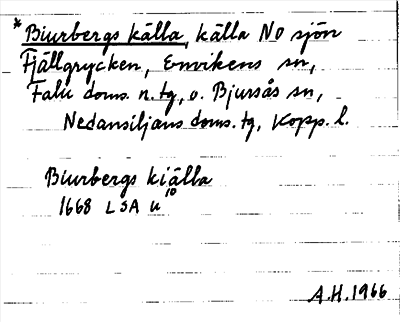 * Biurbergs källa, källa NO sjön
Fjällgrycken, Envikens sn,
Falu doms. n. tg, o. Bjursås sn,
Nedansiljans doms. tg, Kopp. l.
Biurbergs kiälla
1668 LSA U 10
A.H. 1966